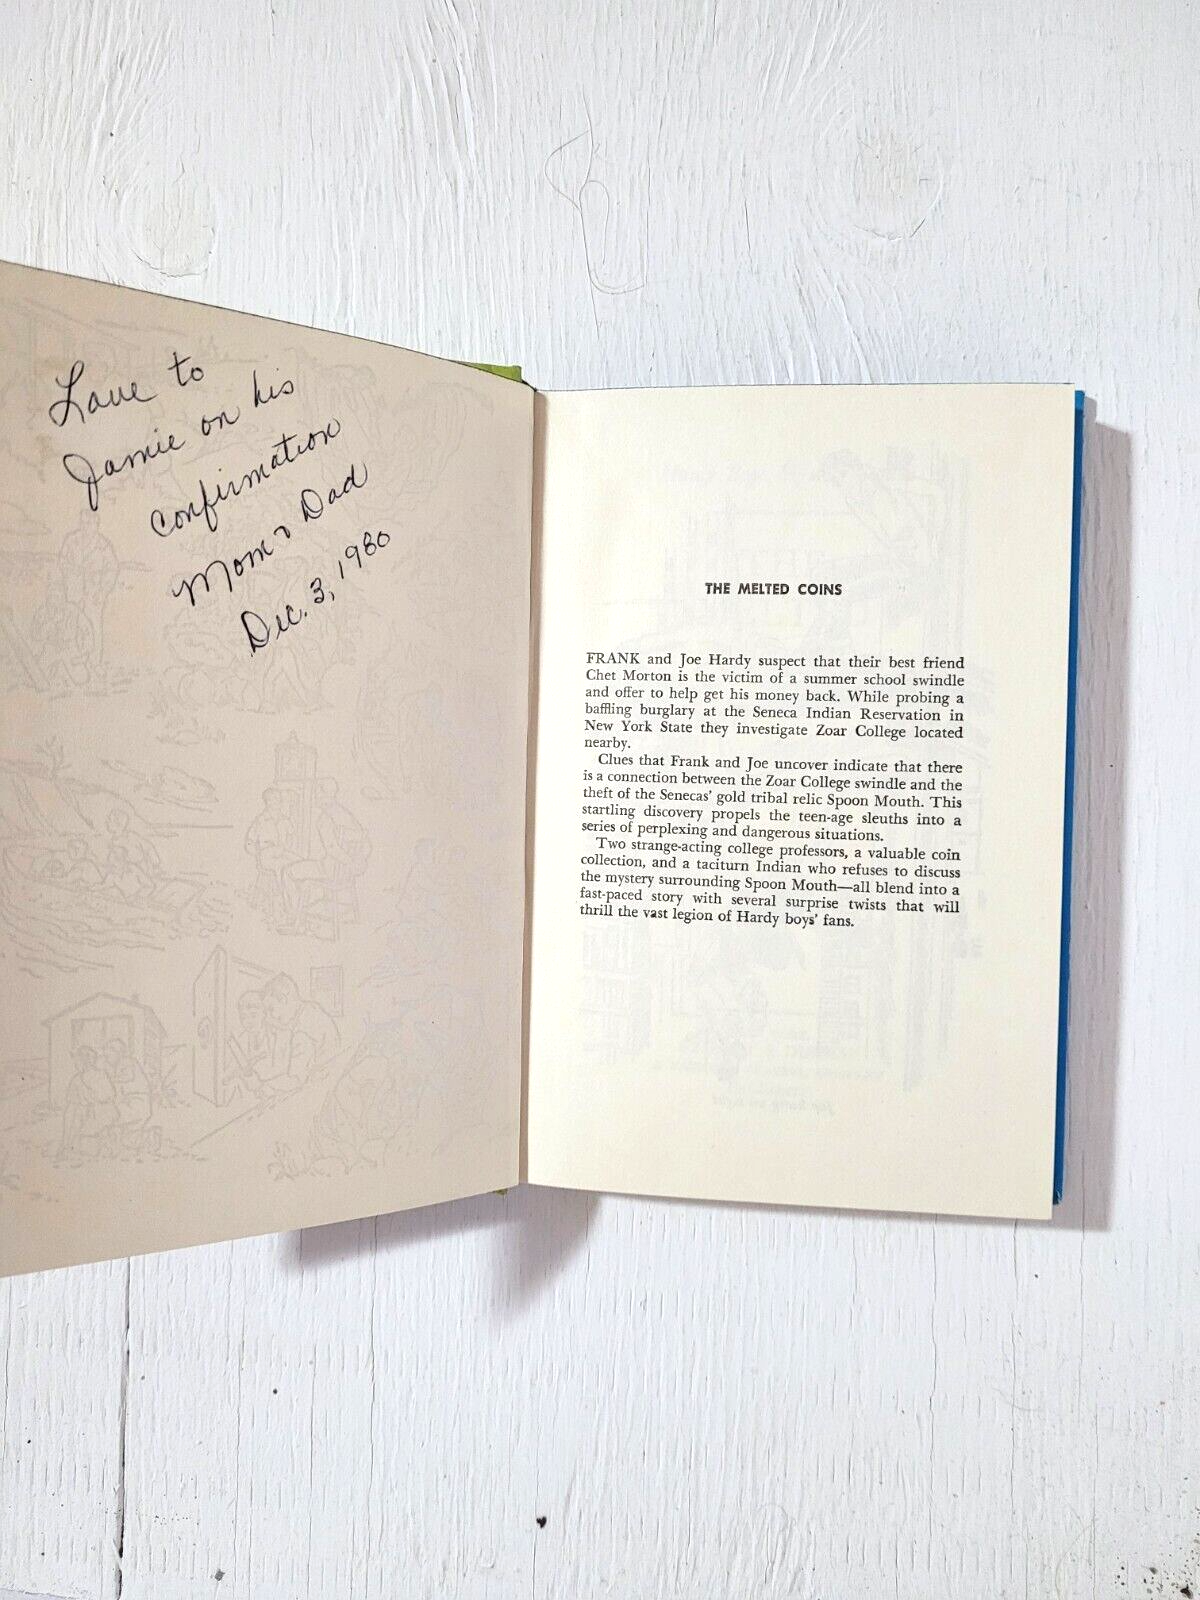 Love to
Jamie on his
confirmation
Mom & Dad
Dec. 3, 1980
THE MELTED COINS
FRANK and Joe Hardy suspect that their best friend
Chet Morton is the victim of a summer school swindle
and offer to help get his money back. While probing a
baffling burglary at the Seneca Indian Reservation in
New York State they investigate Zoar College located
nearby.
Clues that Frank and Joe uncover indicate that there
is a connection between the Zoar College swindle and the
theft of the Senecas' gold tribal relic Spoon Mouth. This
startling discovery propels the teen-age sleuths into a
series of perplexing and dangerous situations.
Two strange-acting college professors, a valuable coin
collection, and a taciturn Indian who refuses to discuss
the mystery surrounding Spoon Mouth—all blend into a
fast-paced story with several surprise twists that will
thrill the vast legion of Hardy boys' fans.